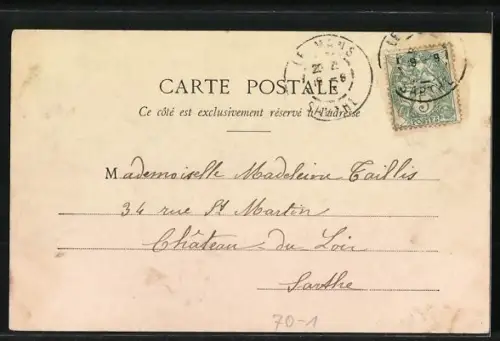 LE MANS
SARTHE
CARTE POSTALE
Ce côté est exclusivement réservé à l'adresse
Mademoiselle Madeleine Taillis
34 rue St Martin
Château du Loir
Sarthe
70-1